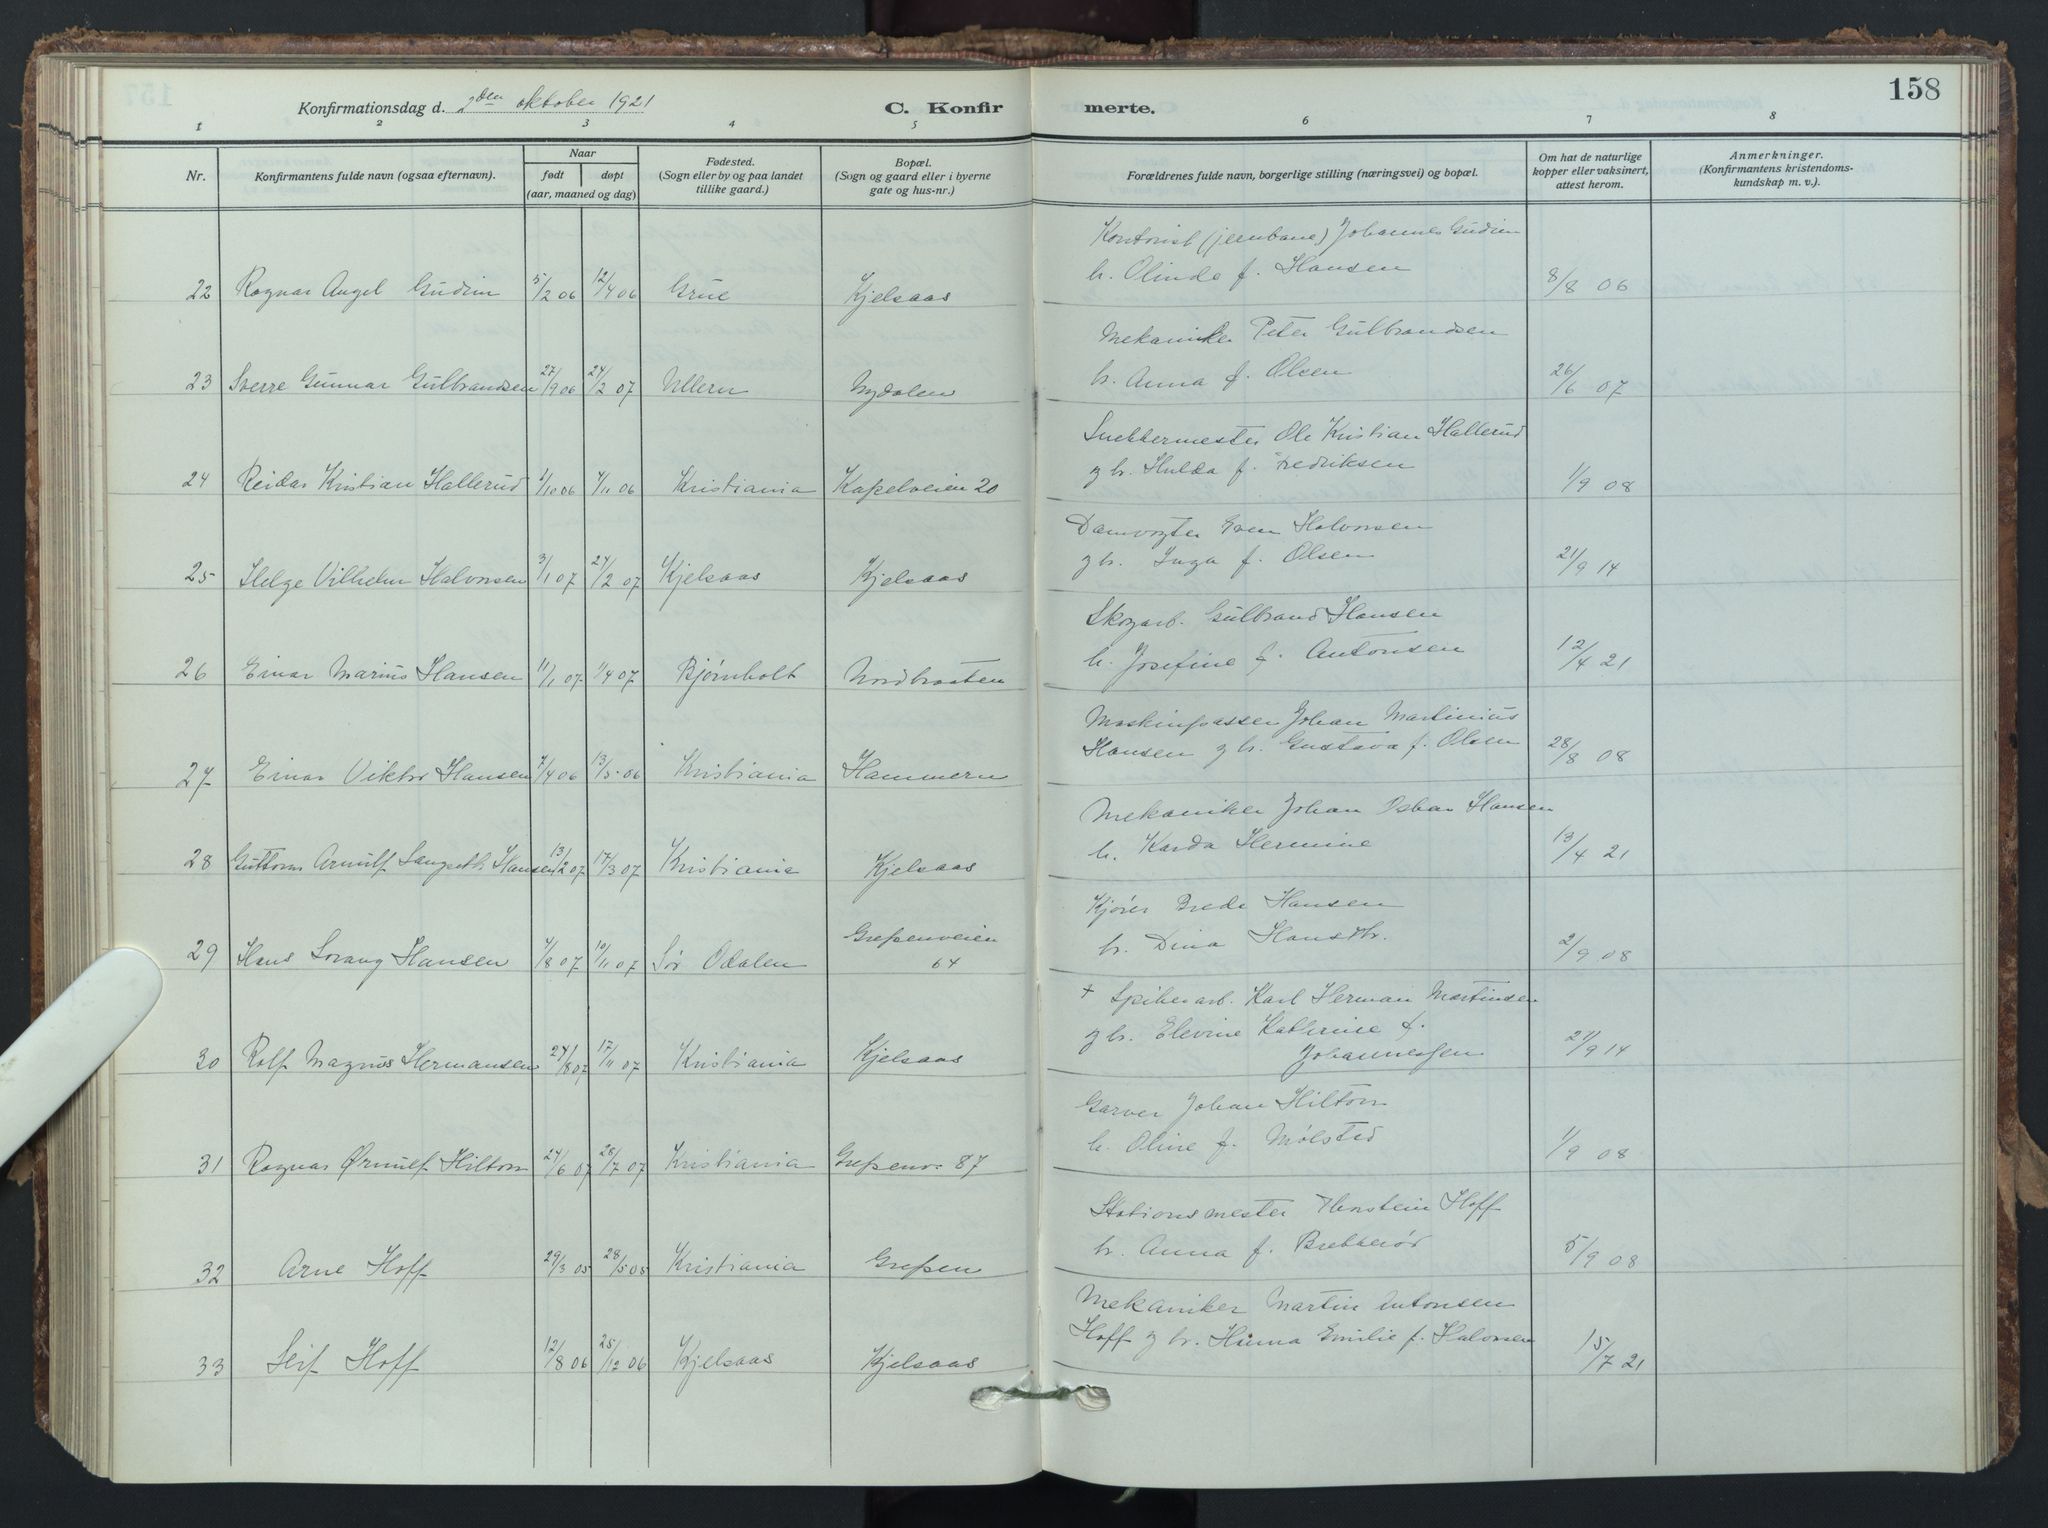 158
Konfirmationsdag d. 2den oktober 1921
C. Konfirmerte.
1 2 3 4 5 6 7 8
Nr.
Konfirmantens fulde navn (ogsaa efternavn).
Naar
født døpt
(aar, maaned og dag)
Fødested.
(Sogn eller by og paa landet
tillike gaard.)
Bopæl.
(Sogn og gaard eller i byerne
gate og hus-nr.)
Forældrenes fulde navn, borgerlige stilling (næringsvei) og bopæl.
Om hat de naturlige
kopper eller vaksinert,
attest herom.
Anmerkninger.
(Konfirmantens kristendoms-
kundskap m. v.).
Kontorist (jernbane) Johannes Gudim
22 Ragnar Angel Gudim 5/2 06 12/4 06 Grue Kjelsaas h. Olinde f. Hansen 8/8 06
Mekaniker Peter Gulbrandsen
23 Sverre Gunnar Gulbrandsen 27/9 06 24/2 07 Ullern Nydalen h. Anna f. Olsen 26/6 07
Snekkermester Ole Kristian Hallerud
24 Reidar Kristian Hallerud 1/10 06 4/11 06 Kristiania Kapelveien 20 og h. Hulda f. Fredriksen 1/9 08
Damvogter Even Halvorsen
25 Helge Vilhelm Halvorsen 3/1 07 24/2 07 Kjelsaas Kjelsaas og h. Inga f. Olsen 21/9 14
Skogarb. Gulbrand Hansen
26 Einar Marius Hansen 11/1 07 1/4 07 Bjørnholt Nordbraaten h. Josefine f. Antonsen 12/4 21
Maskinpasser Johan Martinius
27 Einar Viktor Hansen 7/4 06 13/5 06 Kristiania Hammern Hansen og h. Gustava f. Olsen 28/8 08
Mekaniker Johan Oskar Hansen
28 Guttorm Arnulf Hansen 13/2 07 17/3 07 Kristiania Kjelsaas h. Karda Hermine 13/4 21
Kjører Brede Hansen
29 Hans Hansen 4/8 07 10/11 07 Sør Odalen Grefsenveien
64 h. Dina Hansdtr. 2/9 08
+ Spikerarb. Karl Herman Martinsen
30 Rolf Magnus Hermansen 24/8 07 17/11 07 Kristiania Kjelsaas og h. Elevine Katherine f.
Johannessen 21/9 14
Garver Johan Hilton
31 Ragnar Ørnulf Hilton 24/6 07 28/7 07 Kristiania Grefsenv. 87 h. Oline f. Mølsted 1/9 08
Stationsmester Thorstein Hoff
32 Arne Hoff 29/3 05 28/5 05 Kristiania Grefsen h. Anna f. Brekkerød 5/9 08
Mekaniker Martin Antonsen
33 Leif Hoff 12/8 06 25/12 06 Kjelsaas Kjelsaas Hoff og h. Hanna Emilie f. Halvorsen 15/7 21